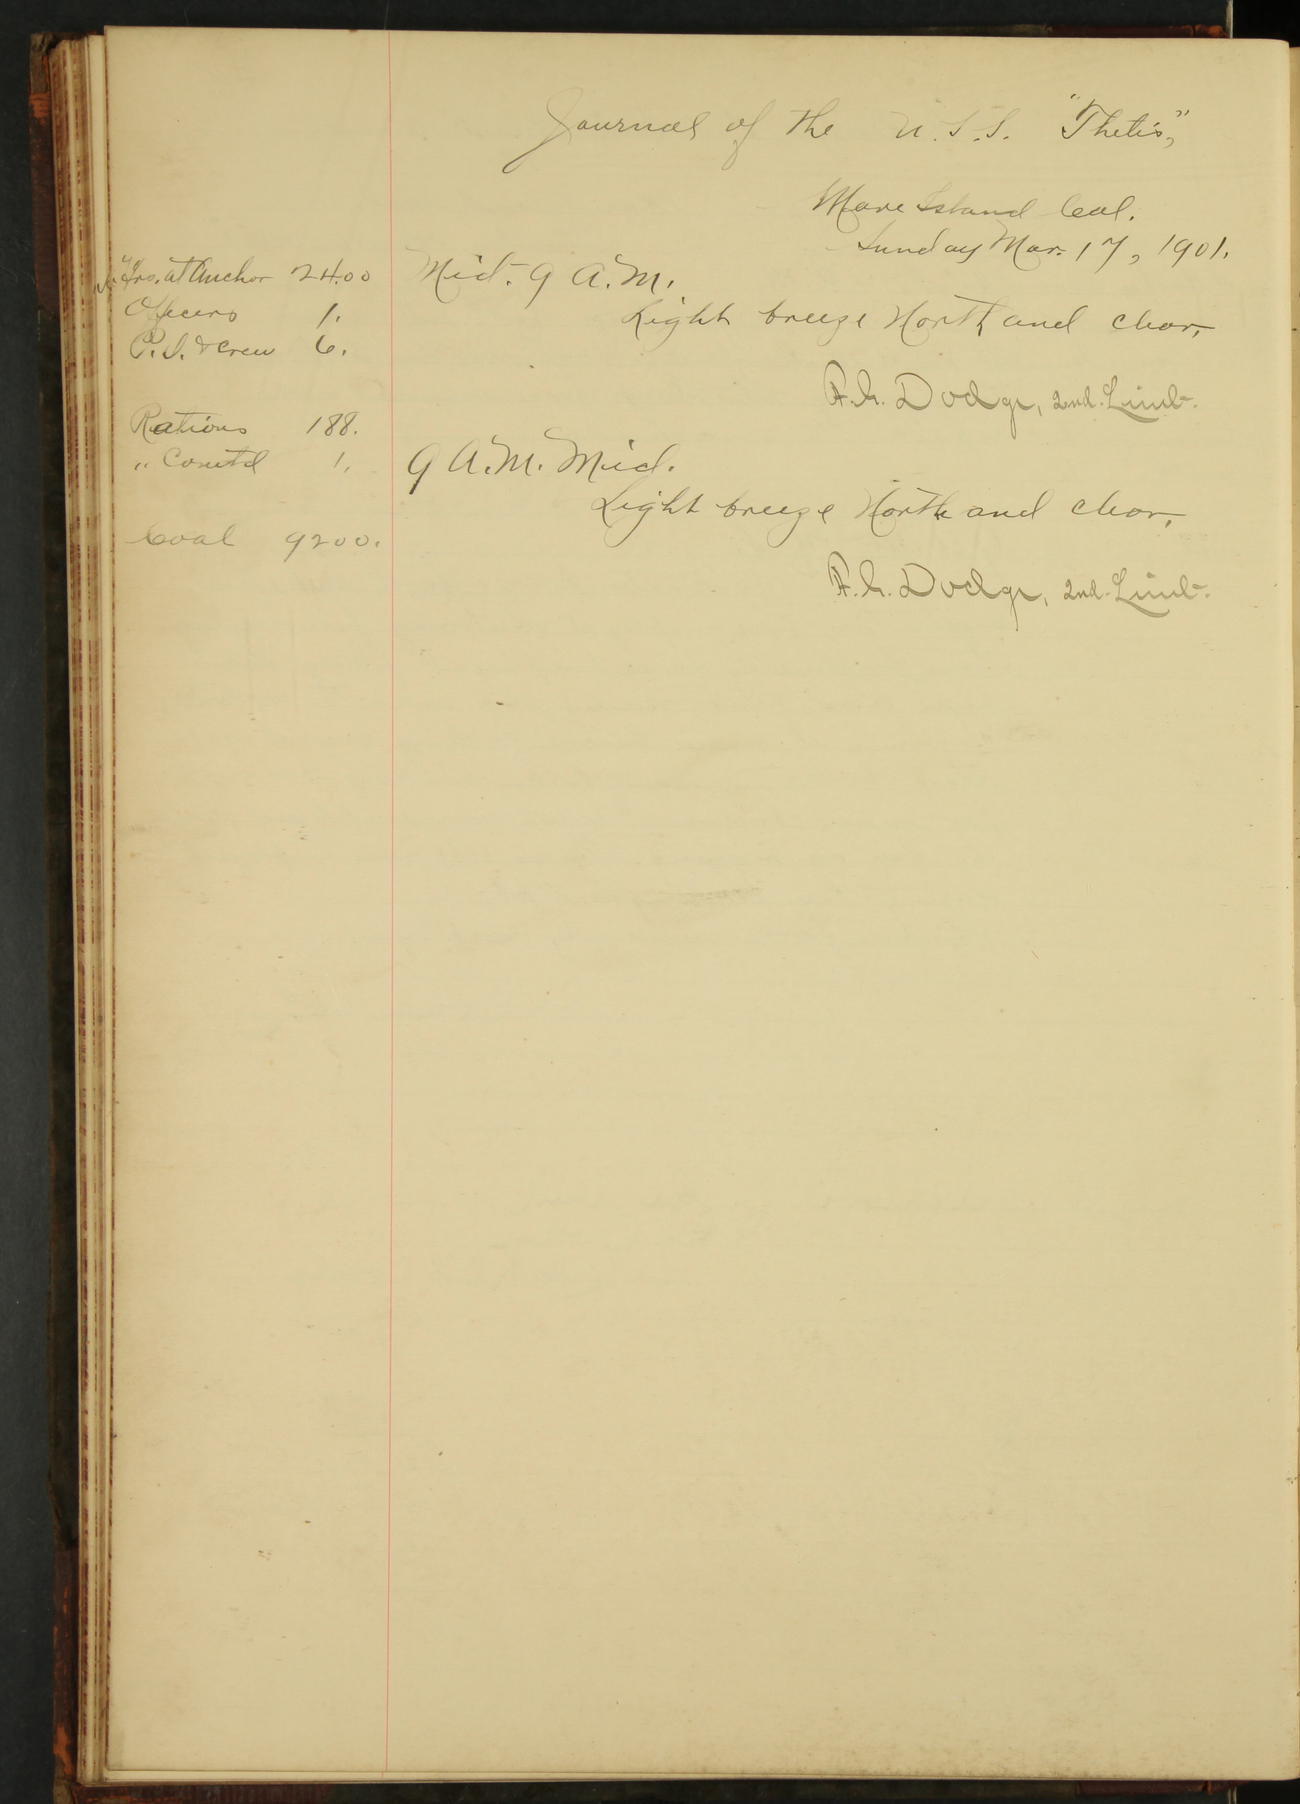 Journal of the U.S.S. "Thetis,"
Mare Island Cal.
Sunday Mar. 17, 1901.
Hrs. at Anchor 24.00
Officers 1.
P.O. & Crew 6.
Rations 188.
" Comt'd 1.
Coal 9200.
Mid. 9 A.M.
Light breeze North and clear,
F.G. Dodge, 2nd. Lieut.
9 A.M. Mid.
Light breeze North and clear,
F.G. Dodge, 2nd. Lieut.